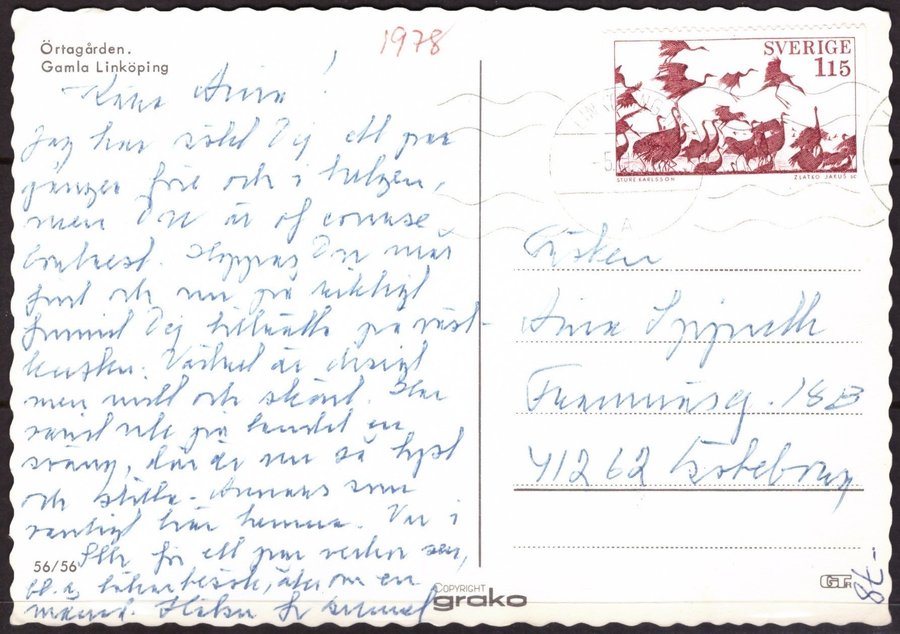 Örtagården.
Gamla Linköping
1978
Kära Anna!
Jag har sökt Dig ett par
gånger före och i helgen,
men Du är of course
bortrest. Hoppas Du mår
fint och nu på riktigt
funnit Dig tillrätta på väst-
kusten. Vädret är disigt
men milt och skönt. Har
varit ute på landet en
sväng, där är nu så tyst
och stilla. Annars som
vanligt här hemma. Var i
Sthlm för ett par veckor sen,
bl.a. åter om en
månad.
56/56
SVERIGE
115
STURE KARLSSON
ZLATKO JAKUS SC
Fröken
Anna
18B
412 62 Göteborg
COPYRIGHT
grako
-78